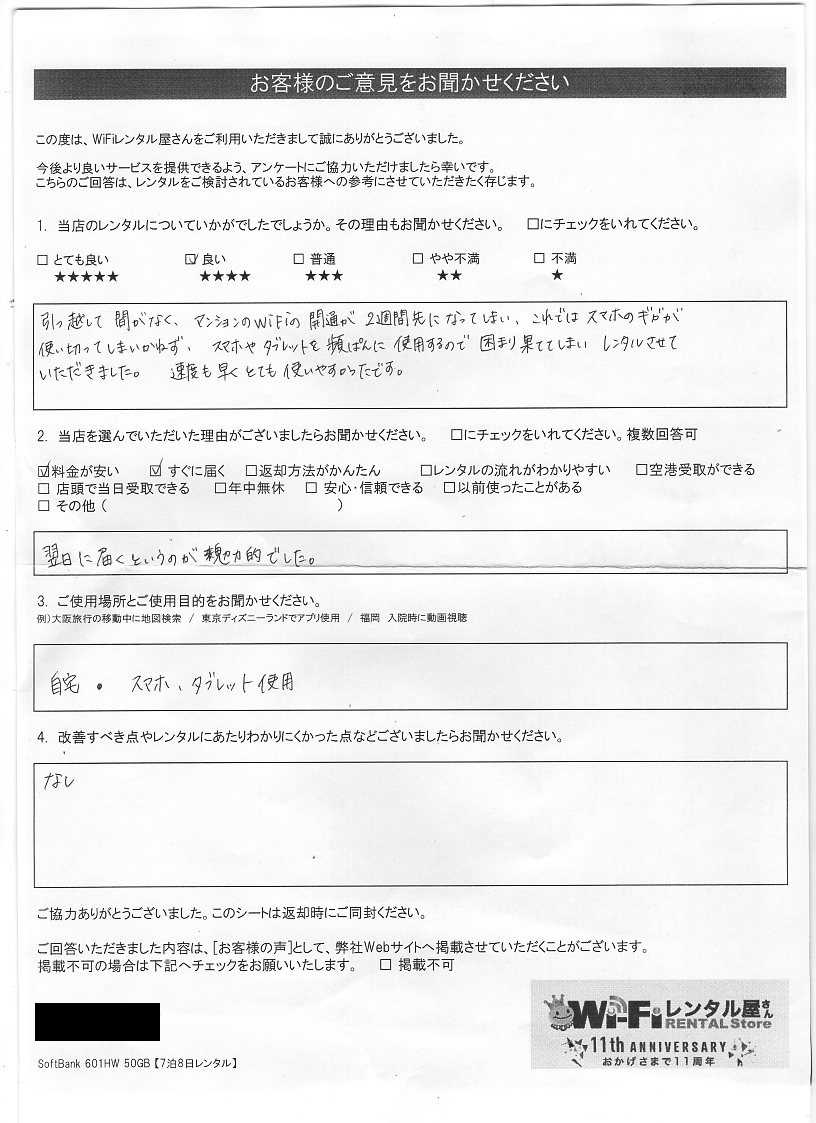 お客様のご意見をお聞かせください
この度は、WiFiレンタル屋さんをご利用いただきまして誠にありがとうございました。
今後より良いサービスを提供できるよう、アンケートにご協力いただけましたら幸いです。
こちらのご回答は、レンタルをご検討されているお客様への参考にさせていただきたく存じます。
1. 当店のレンタルについていかがでしたでしょうか。その理由もお聞かせください。 □にチェックをいれてください。
□ とても良い ☑ 良い □ 普通 □ やや不満 □ 不満
★★★★★ ★★★★ ★★★ ★★ ★
引っ越して間がなく、マンションのWiFiの開通が2週間先になってしまい、これではスマホのギガが
使い切ってしまいかねず、スマホやタブレットを頻ぱんに使用するので困まり果ててしまいレンタルさせて
いただきました。 速度も早くとても使いやすかったです。
2. 当店を選んでいただいた理由がございましたらお聞かせください。 □にチェックをいれてください。複数回答可
☑料金が安い ☑すぐに届く □返却方法がかんたん □レンタルの流れがわかりやすい □空港受取ができる
□ 店頭で当日受取できる □年中無休 □ 安心・信頼できる □以前使ったことがある
□ その他 ( )
翌日に届くというのが魅力的でした。
3. ご使用場所とご使用目的をお聞かせください。
例)大阪旅行の移動中に地図検索 / 東京ディズニーランドでアプリ使用 / 福岡 入院時に動画視聴
自宅 ・ スマホ、タブレット使用
4. 改善すべき点やレンタルにあたりわかりにくかった点などございましたらお聞かせください。
なし
ご協力ありがとうございました。このシートは返却時にご同封ください。
ご回答いただきました内容は、[お客様の声]として、弊社Webサイトへ掲載させていただくことがございます。
掲載不可の場合は下記へチェックをお願いいたします。 □ 掲載不可
Wi-Fiレンタル屋さん
RENTAL Store
11th ANNIVERSARY
おかげさまで11周年
SoftBank 601HW 50GB【7泊8日レンタル】